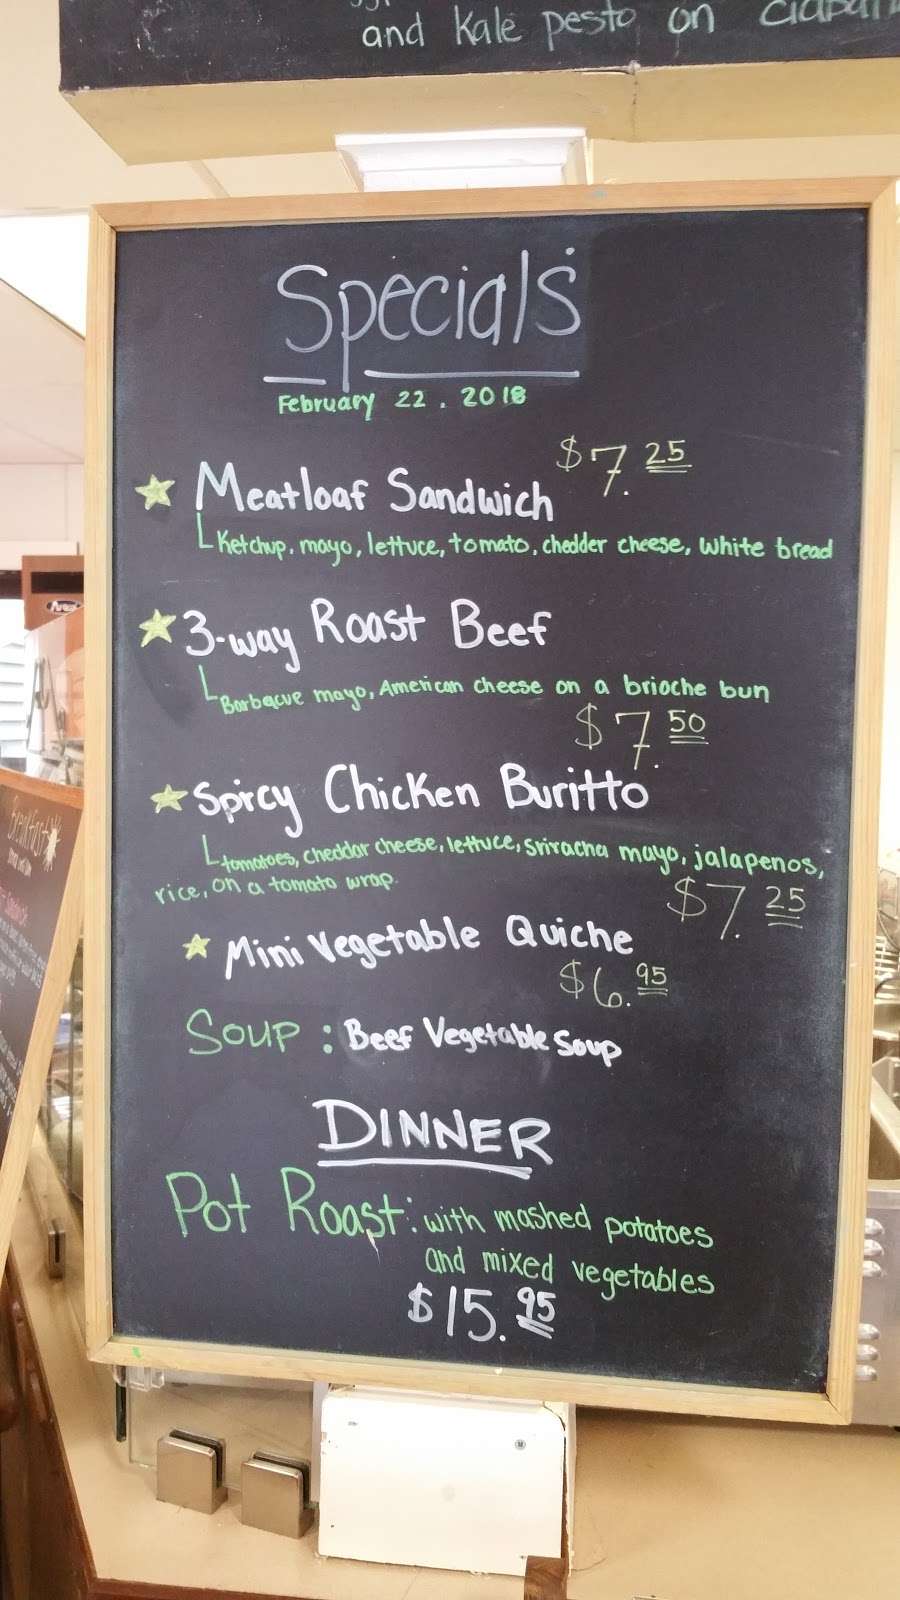 and Kale pesto on
Specials
February 22, 2018
Meatloaf Sandwich $7.25
Ketchup, mayo, lettuce, tomato, chedder cheese, white bread
3-way Roast Beef
Barbecue mayo, American cheese on a brioche bun
$7.50
Spicy Chicken Buritto
tomatoes, cheddar cheese, lettuce, sriracha mayo, jalapenos,
rice, on a tomato wrap.
$7.25
Mini Vegetable Quiche
$6.95
Soup: Beef Vegetable Soup
DINNER
Pot Roast: with mashed potatoes
and mixed vegetables
$15.95
breakfast